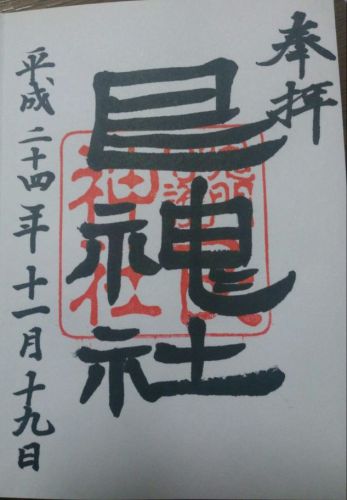 奉拝
神社
平成二十四年十一月十九日
神社